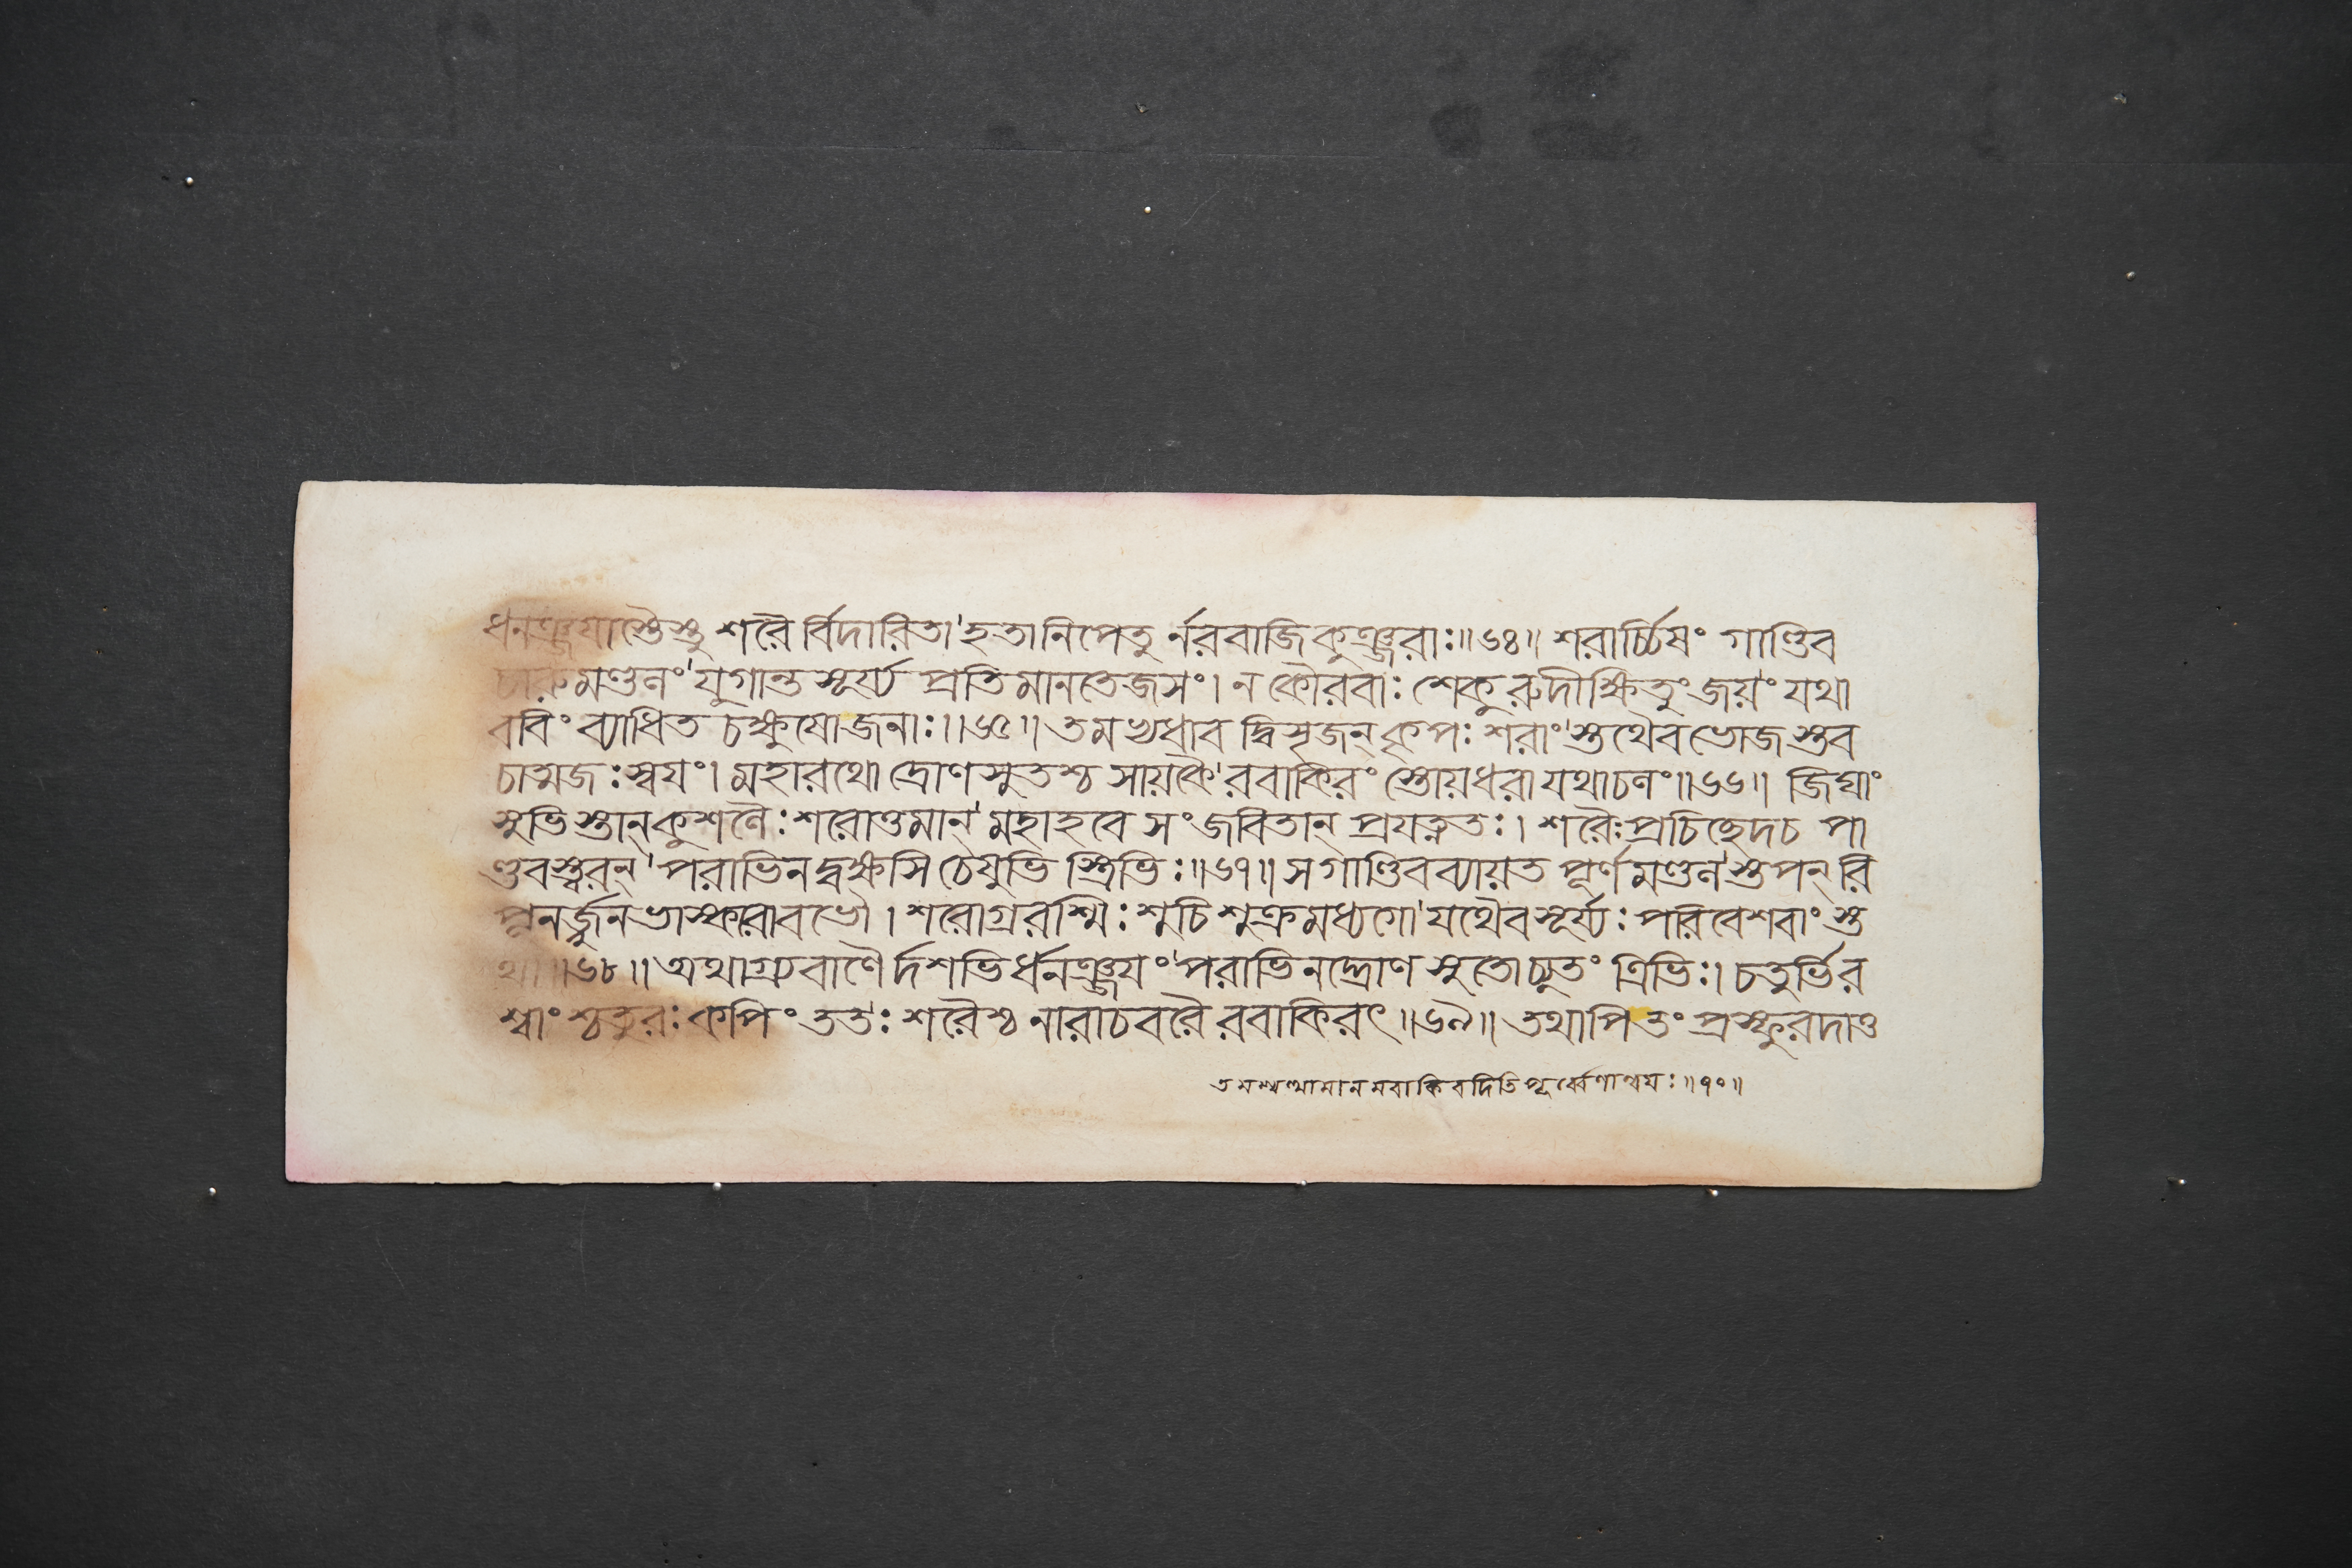 ধনঞ্জযাস্তৈস্তু শরৈ র্বিদারিতা'হতানিপেতু র্নরবাজিকুঞ্জরাঃ॥৬৪॥ শরার্চ্চিষং গাণ্ডিব
চারুমণ্ডলং'যুগান্তসূর্য্য প্রতিমানতেজসং। ন কৌরবাঃ শেকুরুদীক্ষিতুং জয়ং যথা
ববিং ব্যাধিত চক্ষুষোজনাঃ।।৬৫॥ তমভ্যধাব দ্বিসৃজন্ কৃপঃ শরাং'স্তথৈবভোজ স্তব
চাত্মজঃস্বযং। মহারথো দ্রোণসুতশ্চ সায়কৈ'রবাকিরং স্তোয়ধরা যথাচলং॥৬৬॥ জিঘাং
সুভিস্তান্‌কুশলৈঃশরোত্তমান্'মহাহবে সংজবিতান্ প্রযত্নতঃ। শরৈঃপ্রচিচ্ছেদচ পা
ণ্ডবস্ত্বরন্'পরাভিনদ্বক্ষসি চেষুভি স্ত্রিভিঃ॥৬৭॥ সগাণ্ডিবব্যায়ত পূর্ণমণ্ডল'স্তপন্ রি
পূনর্জ্জুনভাস্করাবভৌ। শরোগ্ররশ্মিঃশুচিশুক্রমধ্যগো'যথৈবসূর্য্যঃপরিবেশবাং স্ত
থা॥৬৮॥ অথাগ্র্যবাণৈ র্দশভি র্ধনঞ্জযং'পরাভিনদ্দ্রোণ সুতোচ্যুতং ত্রিভিঃ। চতুর্ভির
শ্বাং শ্চতুরঃ কপিং ততঃ শরৈশ্চ নারাচবরৈ রবাকিরৎ॥৬৯॥ তথাপি তং প্রস্ফুরদাত্ত
পূর্ব্বেণান্বযঃ॥৭০॥